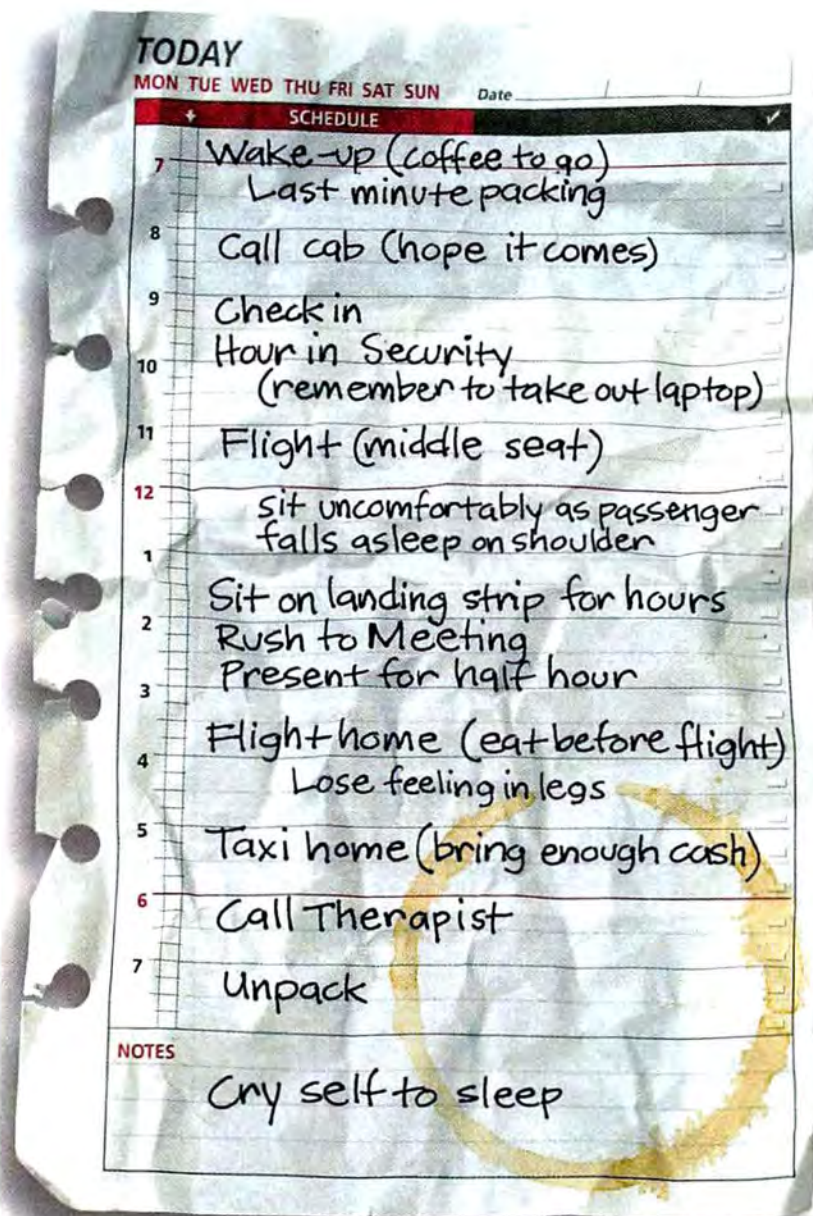 TODAY
MON TUE WED THU FRI SAT SUN Date
SCHEDULE
7 Wake-up (coffee to go)
Last minute packing
8 Call cab (hope it comes)
9 Check in
Hour in Security
10 (remember to take out laptop)
11 Flight (middle seat)
12 sit uncomfortably as passenger
falls asleep on shoulder
1
Sit on landing strip for hours
2 Rush to Meeting
Present for half hour
3
Flight home (eat before flight)
4 Lose feeling in legs
5 Taxi home (bring enough cash)
6 Call Therapist
7 Unpack
NOTES
Cry self to sleep